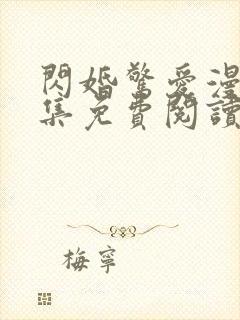 閃婚驚愛漫
集免費閱讀
梅寧